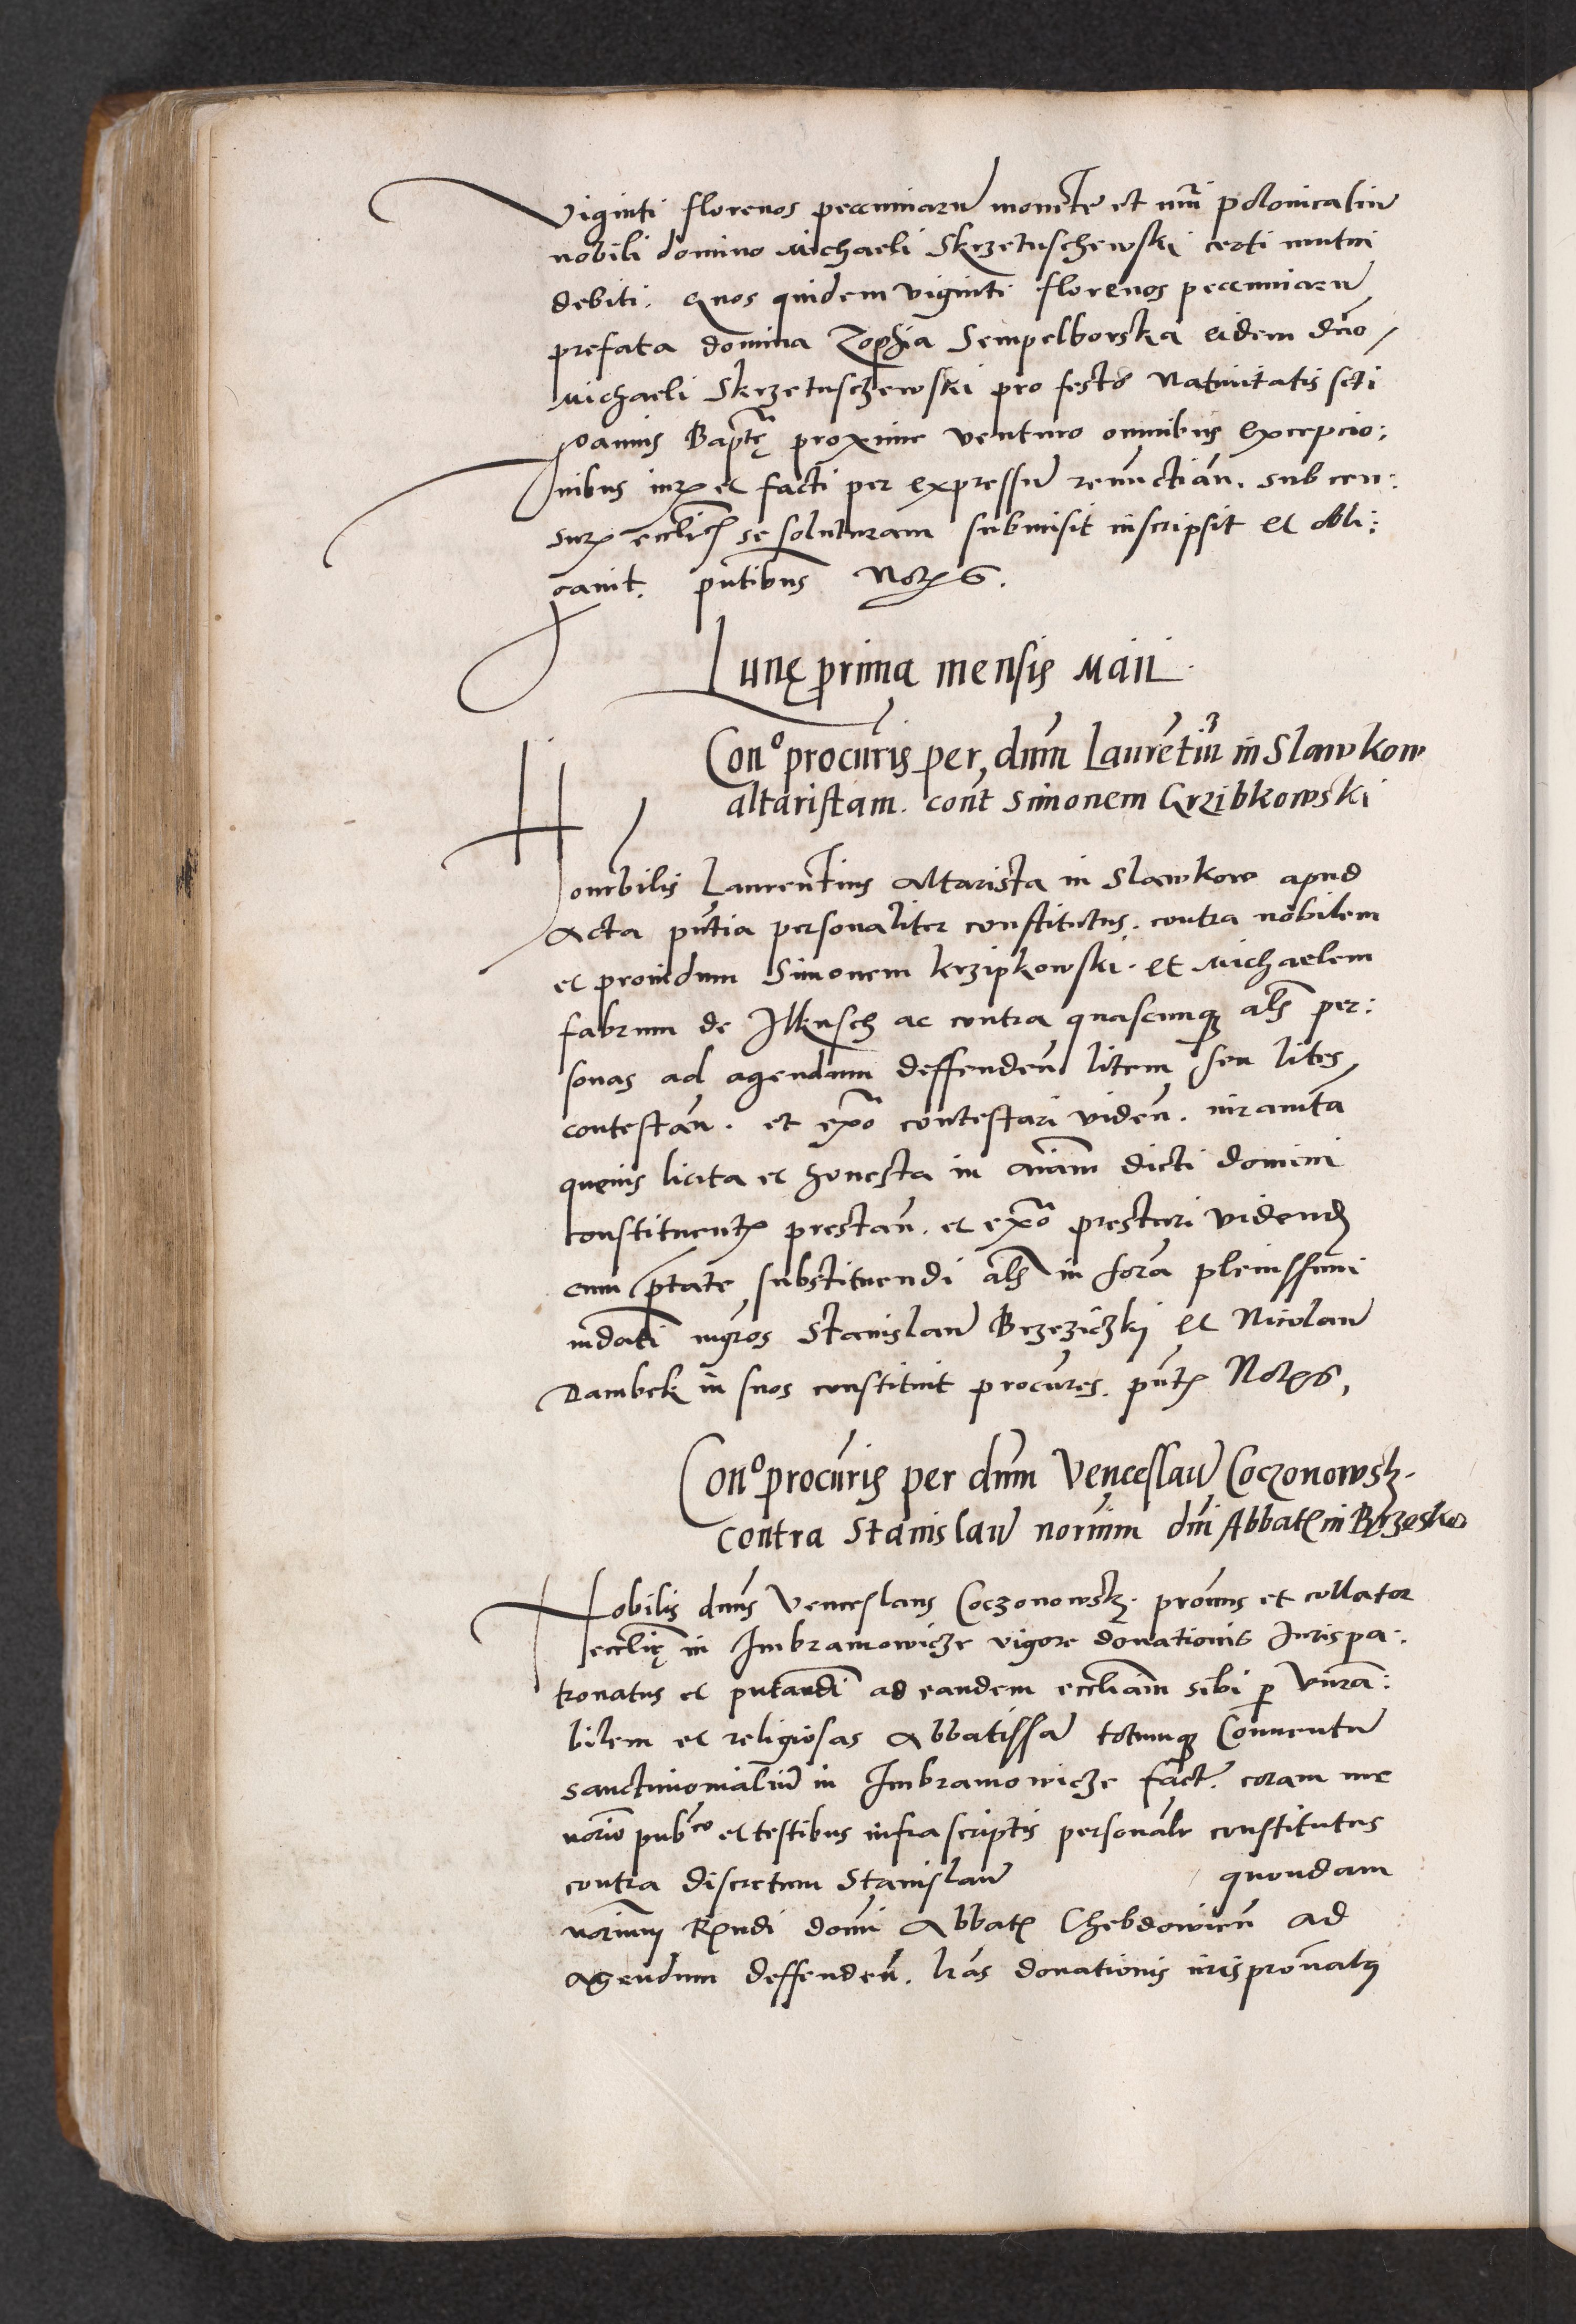 Viginti florenos peccuniarũ monete et nũi polonicaliũ
nobili domino Michaeli Skrzetuschewski certi mutui
debiti. Quos quidem viginti florenos peccuniarũ
prefata domina Zophia Sempelborska eidem dño
Michaeli Skrzetuschewski pro festo Nativitatis scti
Joannis Baptę proxime venturo omnibus excepcio:
nibus iurꝭ et facti per expressũ renũctiañ. sub cen:
surꝭ eccliꝭ se soluturam submisit inscripsit et obli:
gavit. pñtibus Notꝭ 6.
Lunę prima mensis Maii.
Conᵒ procuris per dñm Laurẽtiũ in Slawkow
altaristam. cont̃ Simonem Grzibkowski
Honorbilis Laurentius altarista in Slawkow apud
acta pñtia personaliter constitutus. contra nobilem
et providum Simonem krzipkowski. et Michaelem
fabrum de Ilkusch ac contra quascunqꝫ als per:
sonas ad agendum deffendeñ litem seu lites
contestañ. et exᵒ contestari videñ. iuramta
quevis licita et honesta in aiam dicti domini
constituentꝭ prestañ. et exᵒ prestari videndꝭ
cum p̃tate substituendi als in forã plenissimi
mdati mgros Stanislaũ Brzeziczkÿ et Nicolaũ
Dambek in suos constituit procũres. pñtꝭ Notꝭ 6,
Conᵒ procuris per dñm Venceslaũ Coczonowskꝭ.
contra Stanislaũ noriũm dñi Abbatꝭ in Brzesko
Nobilis dñus Venceslaus Coczonowskꝭ. proñus et collator
ecclię in Imbramowicze vigore donationis Jurispa:
tronatus et pñtandi ad eandem eccliam sibi ꝑ Vñra:
bilem et religiosas Abbatissã totumqꝫ Conventũ
sanctimonialiũ in Imbramowicze fact̃. coram me
norio pubᶜᵒ et testibus infrascriptis personalr constitutus
contra discretum Stanislaũ quondam
noriũm Rꝭndi domi Abbatꝭ Chebdowieñ ad
agendum deffendeñ. lrãs donationis iurisproñatꝰ